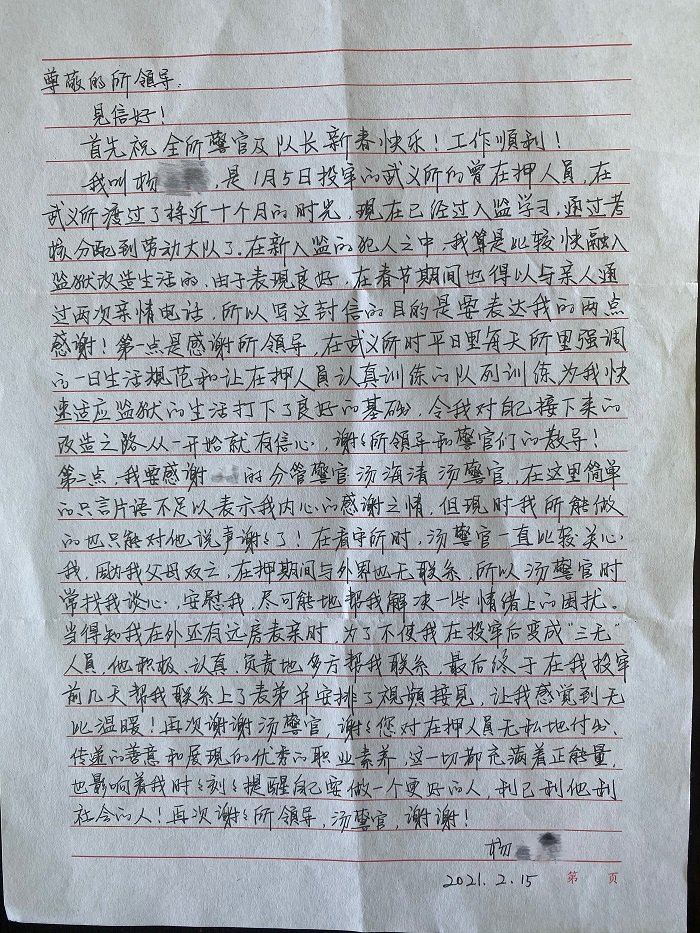 尊敬的所领导:
见信好!
首先祝全所警官及队长新春快乐!工作順利!
我叫杨 ,是1月5日投牢的武义所的曾在押人員,在
武义所渡过了将近十个月的时光,现在已经过入监学习,通过考
核分配到劳动大队了。在新入监的犯人之中,我算是比较快融入
监狱改造生活的,由于表現良好,在春节期间也得以与亲人通
过两次亲情电话,所以写这封信的目的是要表达我的两点
感谢!第一点是感谢所领导,在武义所时平日里每天所里强调
的一日生活规范和让在押人員认真训练的队列训练,为我快
速适应监狱的生活打下了良好的基础,令我对自己接下来的
改造之路从一开始就有信心,谢谢所领导和警官们的教导!
第二点,我要感谢 的分管警官汤海清汤警官,在这里简单
的只言片语不足以表示我内心的感谢之情,但現时我所能做
的也只能对他说声谢谢了!在看守所时,汤警官一直比较关心
我,因为我父母双亡,在押期间与外界也无联系,所以汤警官时
常找我谈心,安慰我,尽可能地帮我解决一些情绪上的困扰。
当得知我在外还有远房表亲时,为了不使我在投牢后变成“三无”
人员,他积极、认真、负责地多方帮我联系,最后终于在我投牢
前几天帮我联系上了表弟并安排了视頻接见,让我感觉到无
比温暖!再次谢谢汤警官,谢谢您对在押人员无私地付出、
传递的善意和展現的优秀的职业素养,这一切都充满着正能量,
也影响着我时时刻刻提醒自己要做一个更好的人,利己利他利
社会的人!再次谢谢所领导,汤警官,谢谢!
杨
2021.2.15 第 页